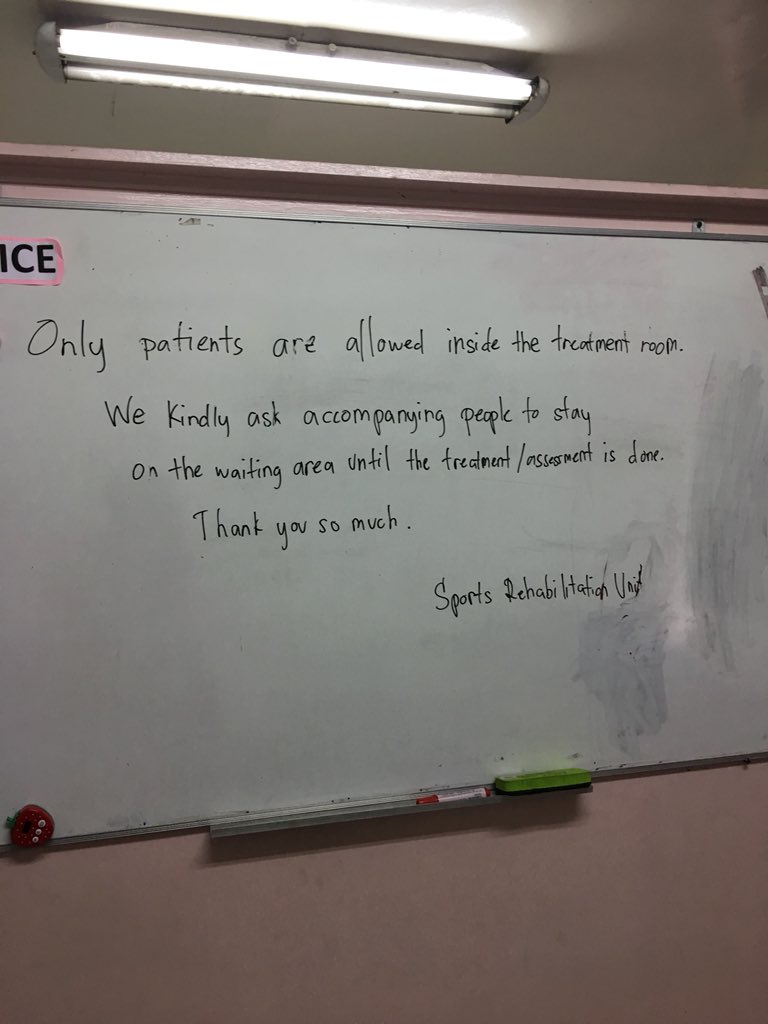 ICE
Only patients are allowed inside the treatment room.
We kindly ask accompanying people to stay
on the waiting area until the treatment/assessment is done.
Thank you so much.
Sports Rehabilitation Unit